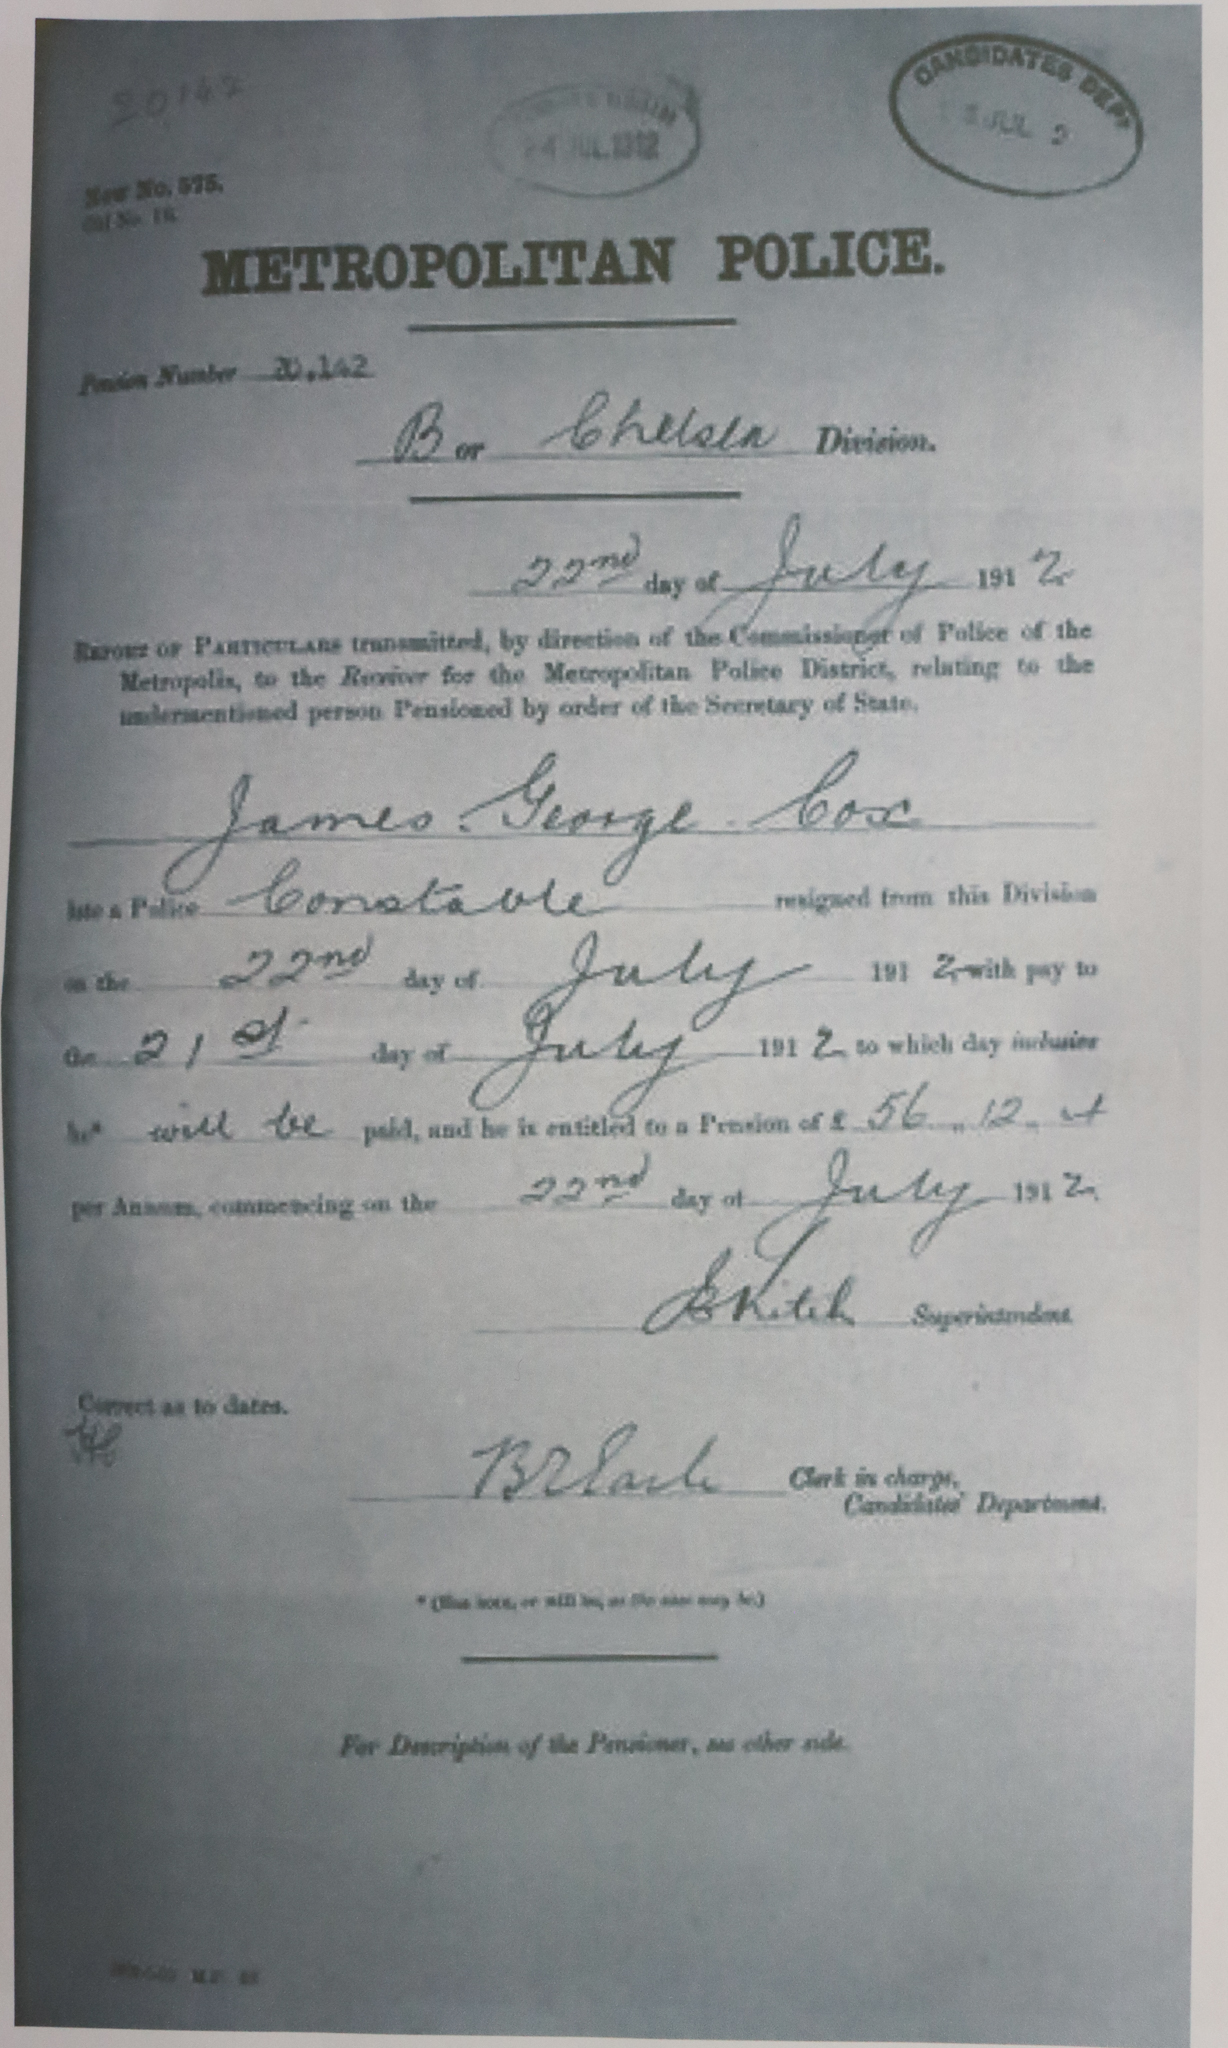 20142
24 JUL.1912
CANDIDATES DEPT
JUL 2
New No. 575.
Old No. 16.
METROPOLITAN POLICE.
Pension Number 20,142
B or Chelsea Division.
22nd day of July 1912
REPORT OF PARTICULARS transmitted, by direction of the Commissioner of Police of the
Metropolis, to the Receiver for the Metropolitan Police District, relating to the
undermentioned person Pensioned by order of the Secretary of State.
James George Cox
late a Police Constable resigned from this Division
on the 22nd day of July 1912 with pay to
the 21st day of July 1912 to which day inclusive
he* will be paid, and he is entitled to a Pension of £ 56 .. 12 ..
per Annum, commencing on the 22nd day of July 1912.
Superintendent.
Correct as to dates.
Clerk in charge,
Candidates' Department.
* (Has been, or will be, as the case may be.)
For Description of the Pensioner, see other side.
M.P.